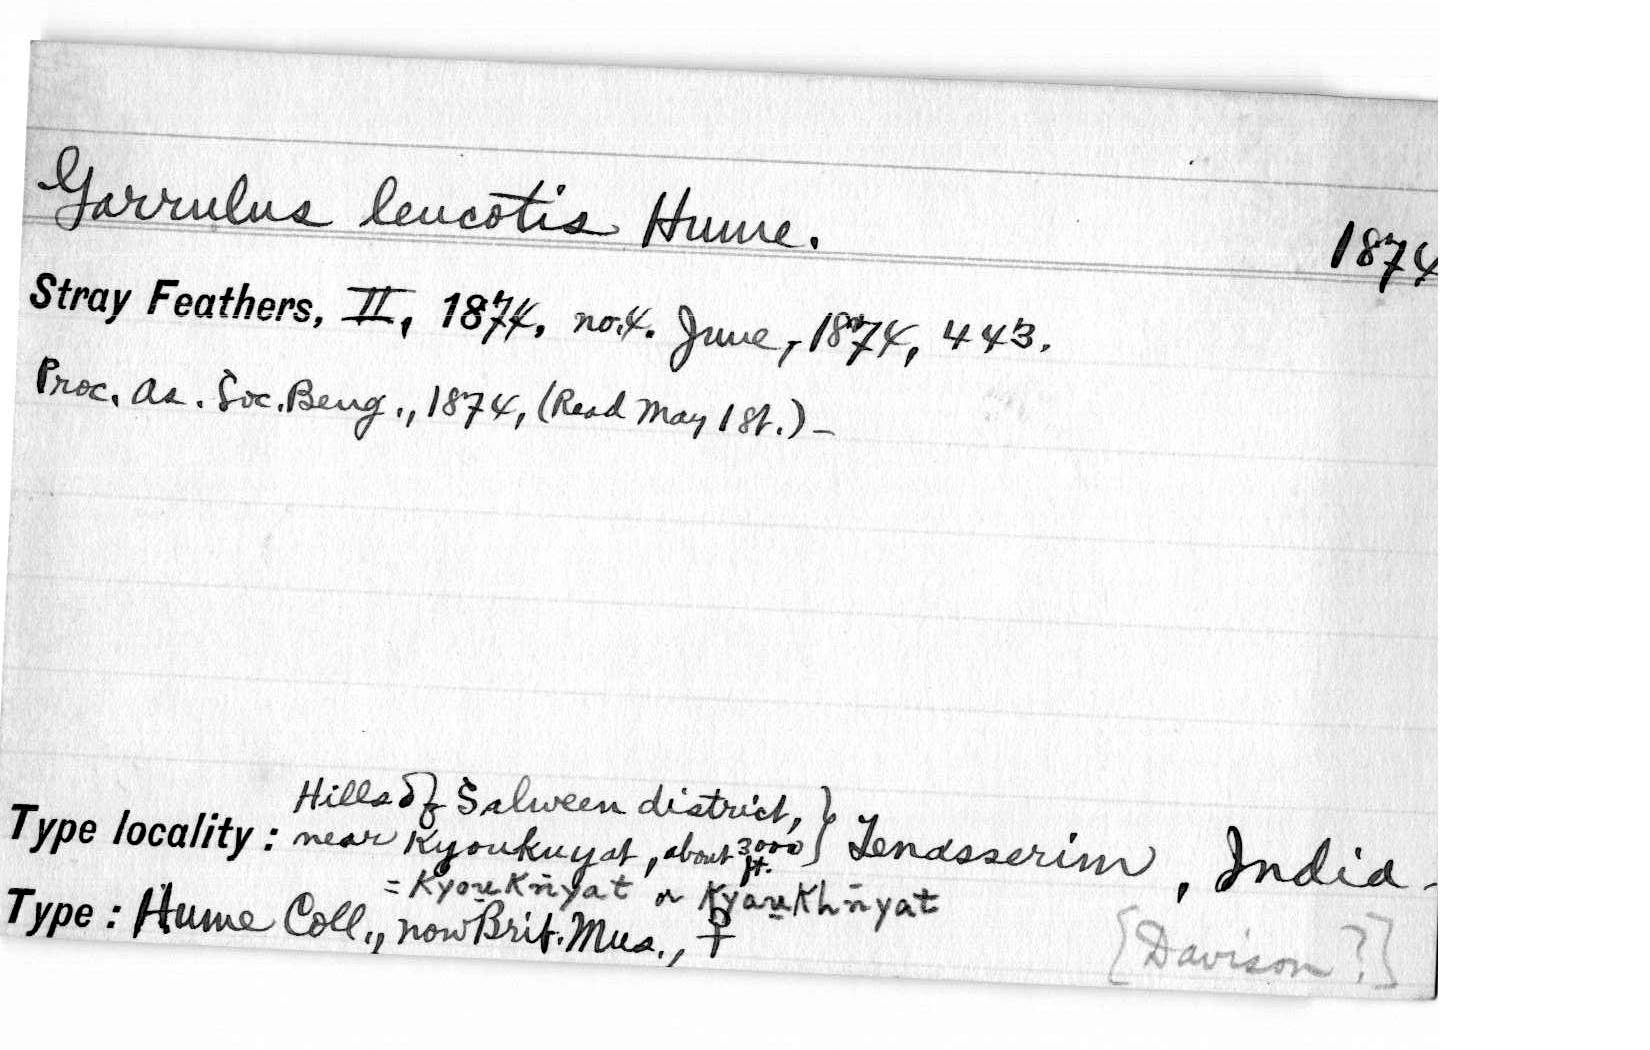 Garrulus leucotis Hume.
1874
Stray Feathers, II, 1874, no.4. June, 1874, 443.
Proc. As. Soc. Beng., 1874, (Read May 1st.) –
Hills of Salween district,
Type locality: near Kyoukuyat, about 3000 ft. } Tenasserim, India –
= KyoukKnyat or KyaukKhnyat
Type: Hume Coll., now Brit. Mus., ♀
[Davison?]